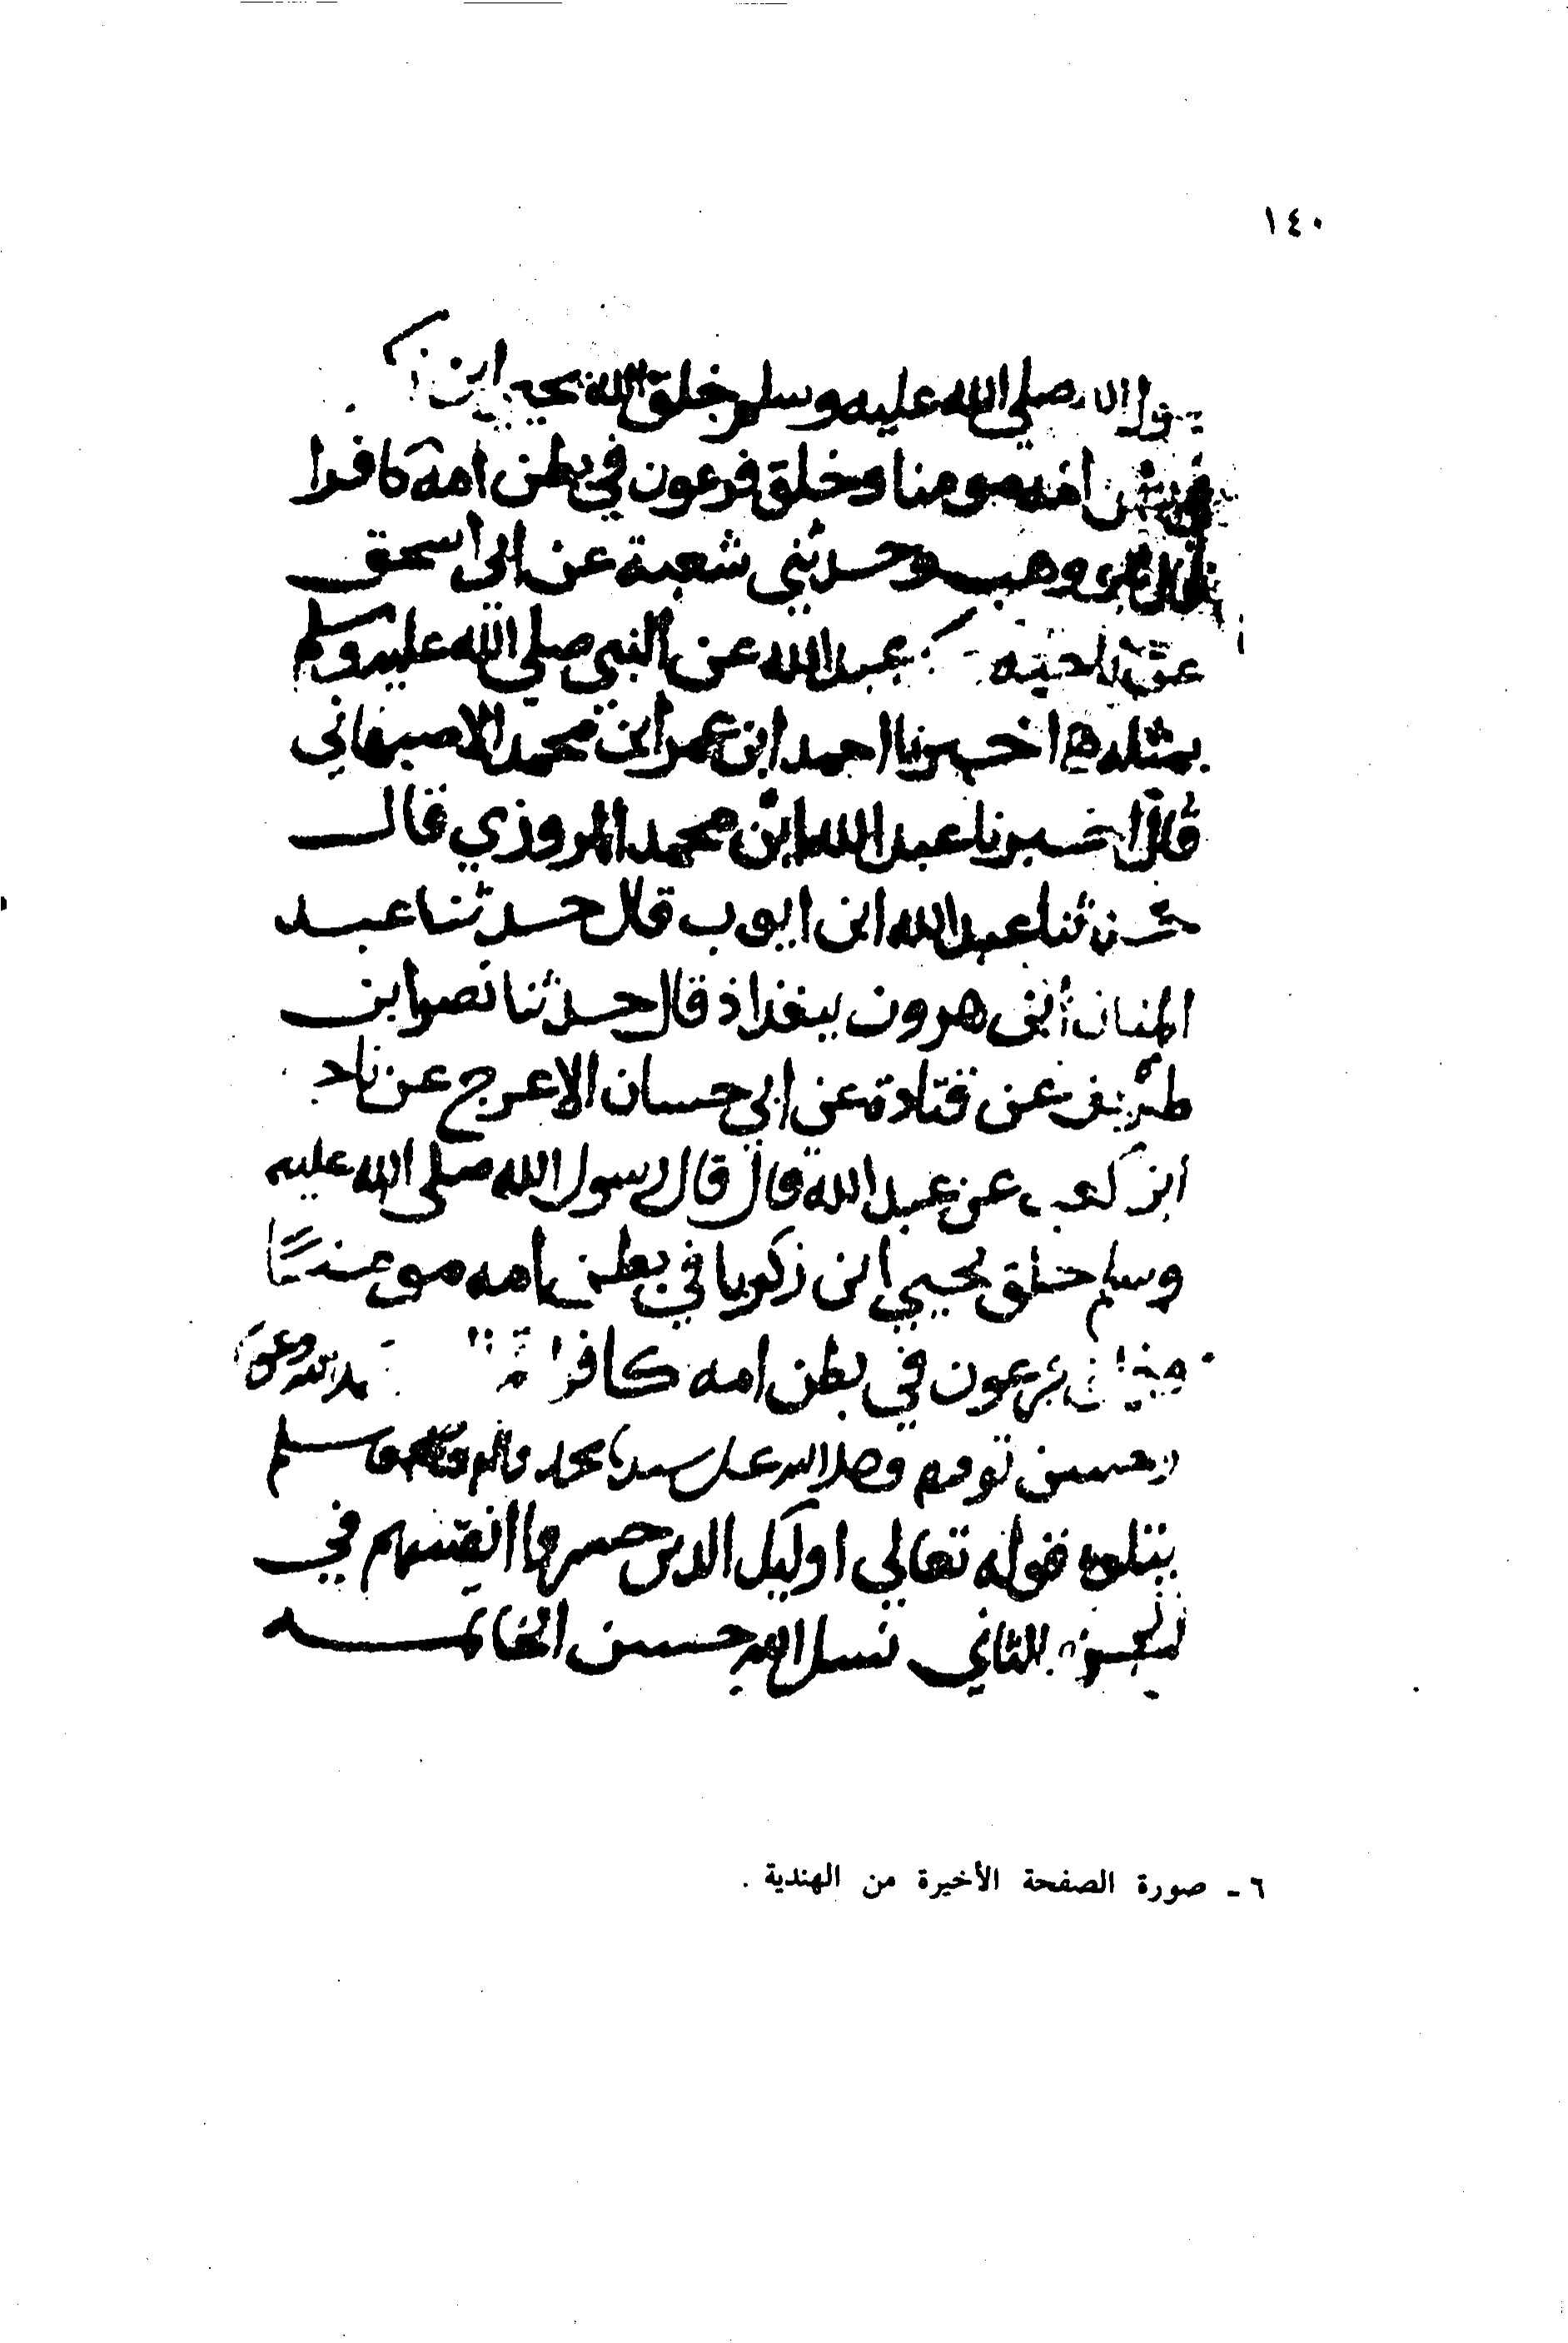 ١٤٠
الله صلى الله عليه وسلم خلق الله يحيى ابن
امه مومنا وخلق فرعون في بطن امه كافرا
وهب وحدثني شعبة عن ابي اسحق
عن ناجيه عبد الله عن النبي صلى الله عليه وسلم
بمثله اخبرنا احمد ابن عمر ابن محمد الاصبهاني
قال اخبرنا عبد الله ابن محمد المروزي قال
حدثنا عبد الله ابن ايوب قال حدثنا عبد
المنان ابن هرون ببغداذ قال حدثنا نصر ابن
طريف عن قتادة عن ابي حسان الاعرج عن ناج
ابن كعب عن عبد الله قال قال رسول الله صلى الله عليه
وسلم خلق يحيى ابن زكريا في بطن امه مومنا
فرعون في بطن امه كافرا
توفيقه وصلى الله على سيدنا محمد واله وصحبه وسلم
يتلوه قوله تعالى اوليك الذين خسروا انفسهم في
الجزء الثاني نسل الله حسن الخاتمه
٦ - صورة الصفحة الأخيرة من الهندية .